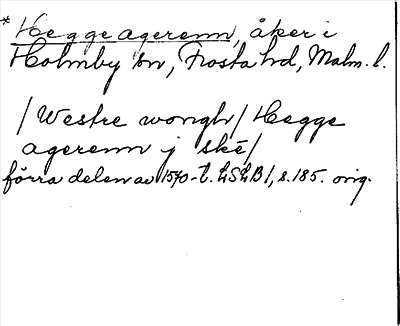 * Hegge agerenn, åker i
Holmby sn, Frosta hd, Malm. l.
/ Westre wongh / Hegge
agerenn j ske /
förra delen av 1570-t. LSLB 1, s. 185. orig.